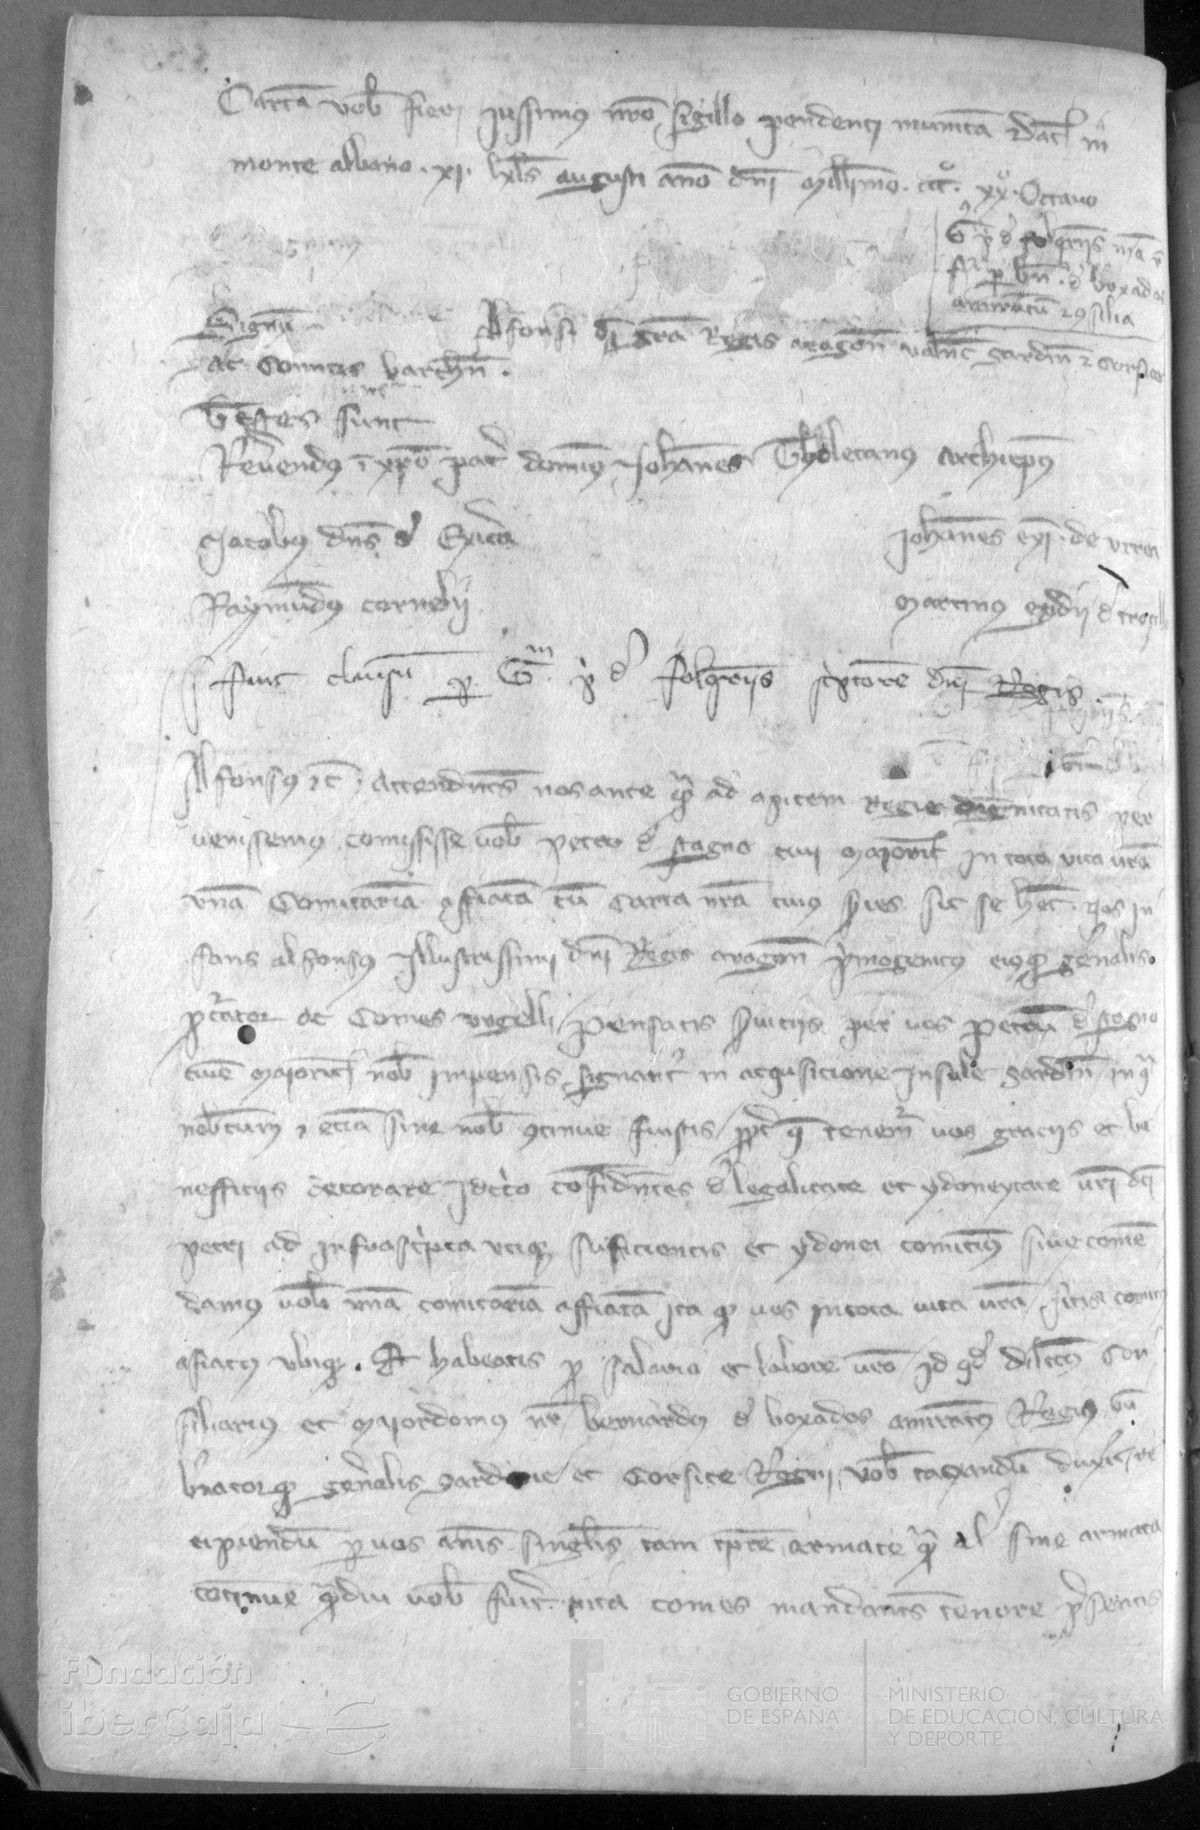 Cartā vob fieri jussimus nr̄o sigillo pendenti munitā Dat̄ in
monte albano · xi · kl̄s augusti año dn̄i Mill̄imo · ccc° · xx° · Octavo
G p̄ d'
fr p bn̄ · d' boxad
amiratū 2 9silia
Signū Alfonsi di gr̄a Regis aragoñ valn̄c sardiñ 2 corsice
ac Comitis barchn̄ ·
Testes sunt
Rev̄endus ī xp̄o pat̄ dominus Joh̄anes Tholetanus archiep̄us
Jacobus dn̄s d' Exerica
Joh̄anes exī · de urrea
Raymūdus cornelii
Martinus egidii d'
Fuit clausū p G m̄ p̄ d' folq̄riis sc̄ptorē dn̄i Regis ·
Alfonsus 2c̄ · Attendn̄tes nos ante q̄ ad apicem Regie dignitatis per
venissemus comisisse vob Petro d' stagno civi Maioric̄ in tota vita vr̄a
unā Comitariā affiatā cū carta nr̄a cuius s̄ies sic se h̄et · Nos in
fans alfonsus Illustrissimi dn̄i Regis aragoñ p̄mogenitus eiusq gen̄alis
p̄curator ac Comes urgelli Pensatis s̄viciis per vos Petrū d' stagno
civē Maioric̄ nob impensis signant̄ in acquisicione Insule sardiñ in q̄
nobcum 2 eciā sine nob 9tinue fuistis p̄pt̄ q̄ tenem̄ vos graciis et be
nefficiis decorare Idc̄co cofidn̄tes d' legalitate et ydoneytate vr̄i dc̄i
petri ad infrasc̄pta utiq sufficientis et ydonei comitim̄ sive comē
damus vob unā comitariā affiatā ita q vos in tota vita vr̄a sitis comit
afiatus ubiq · Et habeatis p salario et labore vr̄o id q̄d dilc̄tus con
siliarius et Maiordomus nr̄ bernardus d' boxados amiratus Regius gu
bnatorq gen̄alis sardinie et Corsice Regni vob taxandū duxit re
cipiendū p vos anis singulis tam tp̄re armate q̄ al' sine armata
cotinue q̄diu vob fuit vita comes mandantes tenore p̄sentis
Fundación
iberCaja
GOBIERNO
DE ESPAÑA
MINISTERIO
DE EDUCACIÓN, CULTURA
Y DEPORTE